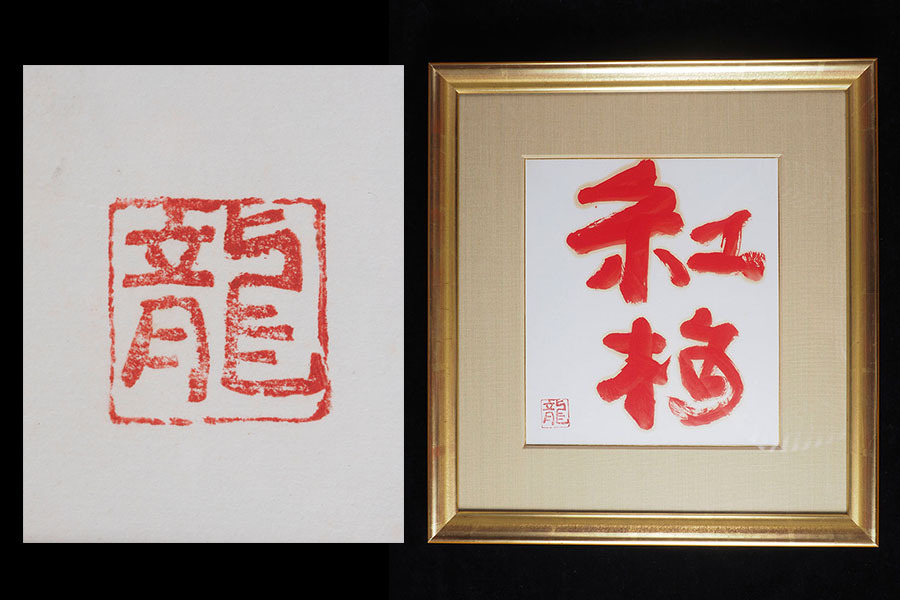 龍
紅
梅
龍